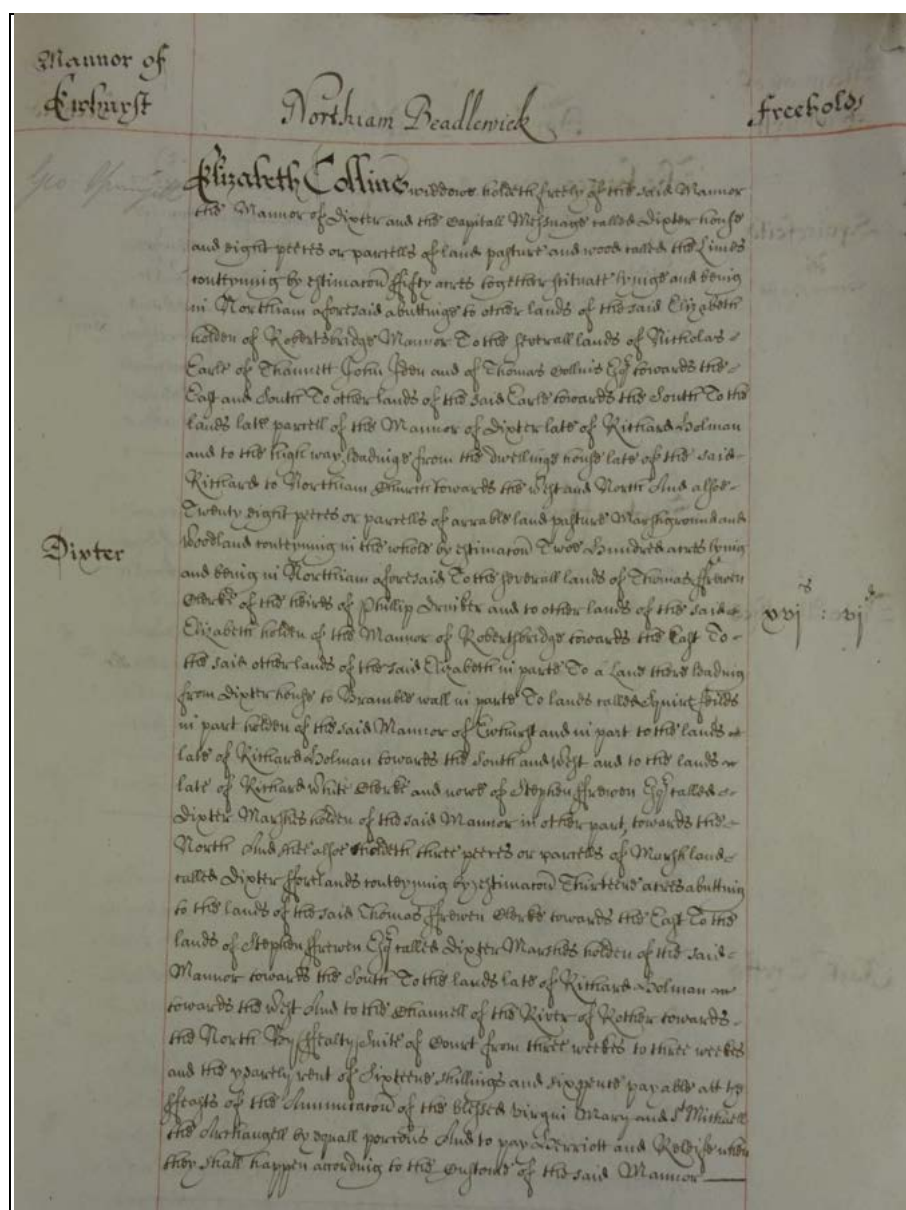 Mannor of
Ewhurst
Northiam Beadlewick
Freehold
Geo
Elizabeth Collins widdowe holdeth freely of the said Mannor
the Mannor of Dixter and the Capitall Messuage called Dixter house
and eight peeces or parcells of land pasture and wood called the Limes
conteyning by estimacon ffifty acres together scituate lyinge and being
in Northiam aforesaid abuttinge to other lands of the said Elizabeth
holden of Robertsbridge Mannor To the severall lands of Nicholas
Earle of Thannett John Iden and of Thomas Collins Esqr towards the
East and South To other lands of the said Earle towards the South To the
lands late parcell of the Mannor of Dixter late of Richard Holman
and to the high way leadinge from the dwellinge house late of the said
Richard to Northiam Church towards the West and North And alsoe
Twenty eight peeces or parcells of arrable land pasture Marshground and
Woodland conteyning in the whole by estimacon Two Hundred acres lying
and being in Northiam aforesaid To the severall lands of Thomas ffrewen
Clerke of the heires of Phillip and to other lands of the said
Elizabeth holden of the Mannor of Robertsbridge towards the East To
the said other lands of the said Elizabeth in parte To a Lane there leading
from Dixter house to Bramble wall in parte To lands called Squire feilds
in part holden of the said Mannor of Ewhurst and in part to the lands
late of Richard Holman towards the South and West and to the lands
late of Richard White Clerke and nowe of Stephen ffrewen Esqr called
Dixter Marshes holden of the said Mannor in other part, towards the
North And shee alsoe holdeth three peeces or parcells of Marsh land
called Dixter fforelands conteyning by estimacon Thirteene acres abutting
to the lands of the said Thomas ffrewen Clerke towards the East To the
lands of Stephen ffrewen Esqr called Dixter Marshes holden of the said
Mannor towards the South To the lands late of Richard Holman
towards the West And to the Channell of the River of Rother towards
the North By ffealty Suite of Court from three weekes to three weekes
and the yearely rent of Sixteene shillings and sixpence payable att the
ffeasts of the Annunciacon of the blessed virgin Mary and St Michaell
the Archangell by equall porcons And to pay Herriott and Releife when
they shall happen according to the Custome of the said Mannor
Dixter
xvjs : vjd